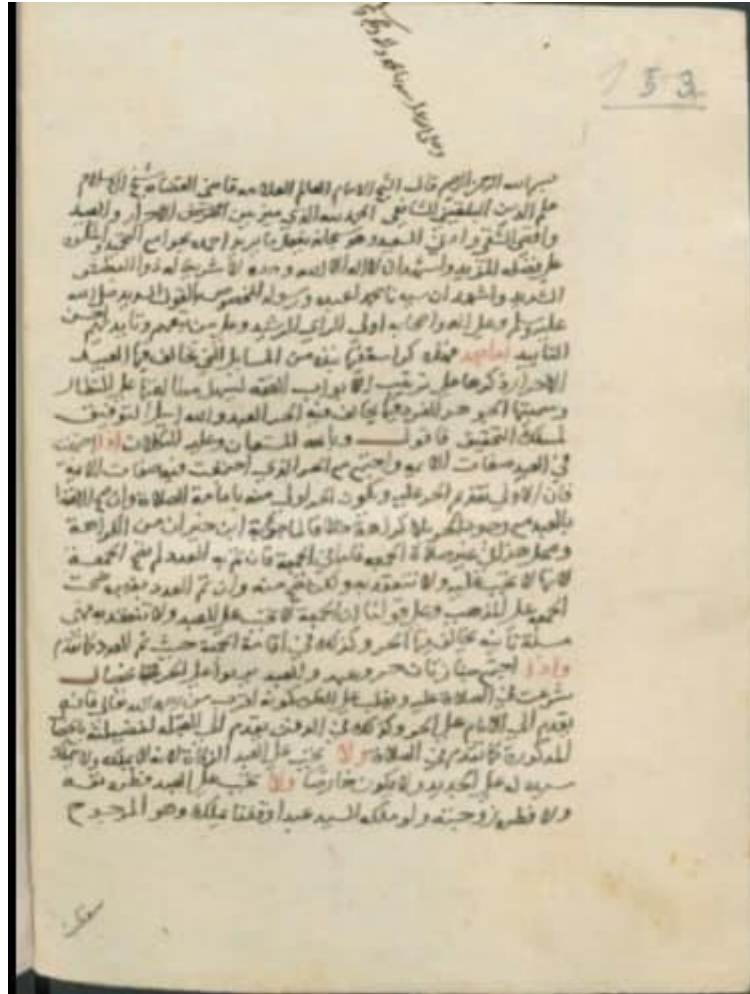 وصلى الله على سيدنا محمد وآله
153
بسم الله الرحمن الرحيم قال الشيخ الامام العالم العلامه قاضي القضاه شيخ الاسلام
علم الدين البلقيني الشافعي الحمد لله الذي ميز بين الاحرار والعبيد
السعيد وهو سبحانه يفعل ما يريد احمده بجوامع التحميد
على فضله المزيد واشهد ان لا اله الا الله وحده لا شريك له ذو البطش
الشديد واشهد ان سيدنا محمدا عبده ورسوله المخصوص بالقول السديد صلى الله
عليه وسلم وعلى اله واصحابه اولى الراي الرشيد وعلى من تبعهم
التاييد اما بعد فهذه كراسة فيها نبذه من المسايل التي يخالف فيها العبيد
الاحرار ذكرها على ترتيب ابواب الفقه ليسهل منالها على النظار
وسميتها الجوهر الفرد فيما يخالف فيه الحر العبد والله اسال التوفيق
لمسلك التحقيق فاقول وبالله المستعان وعليه التكلان اذا اجتمعت
في العبد صفات الائمه واجتمع مع الحر الذي اجتمعت فيه صفات الائمة
فان الاولى تقديم الحر عليه ويكون الحر اولى منه بامامة الصلاة وان صح الاقتدا
بالعبد مع وجود الحر بلا كراهة خلافا لما ابن خيران من الكراهة
ومحل هذا في غير صلاة الجمعه فاما في الجمعة فان تم به العدد لم تصح الجمعة
لانها لا تجب عليه ولا تنعقد به ولكن تصح منه وان تم العدد بغيره صحت
الجمعه على المذهب وعلى قولنا ان الجمعة لا تجب على العبد ولا تنعقد به فهي
مسئلة ثانيه يخالف فيها الحر وكذلك في اقامة الجمعة حيث تم العدد كما تقدم
واذا اجتمع جنازتان حر وعبد
شرعت في الصلاة عليه ويغلب على الظن كونه اقرب من رحمة الله تعالى فانه
يقدم الى الامام على الحر وكذلك في الدفن يقدم الى القبله لفضيلته
المذكورة كما تقدم في الصلاة ولا تجب على العبد الزكاة لانه لا يملك ولا
سيده له على الجديد ولا يكون ولا تجب على العبد فطرة نفسه
ولا فطرة زوجته ولو ملكه السيد عبدا وقلنا يملك وهو المرجوح